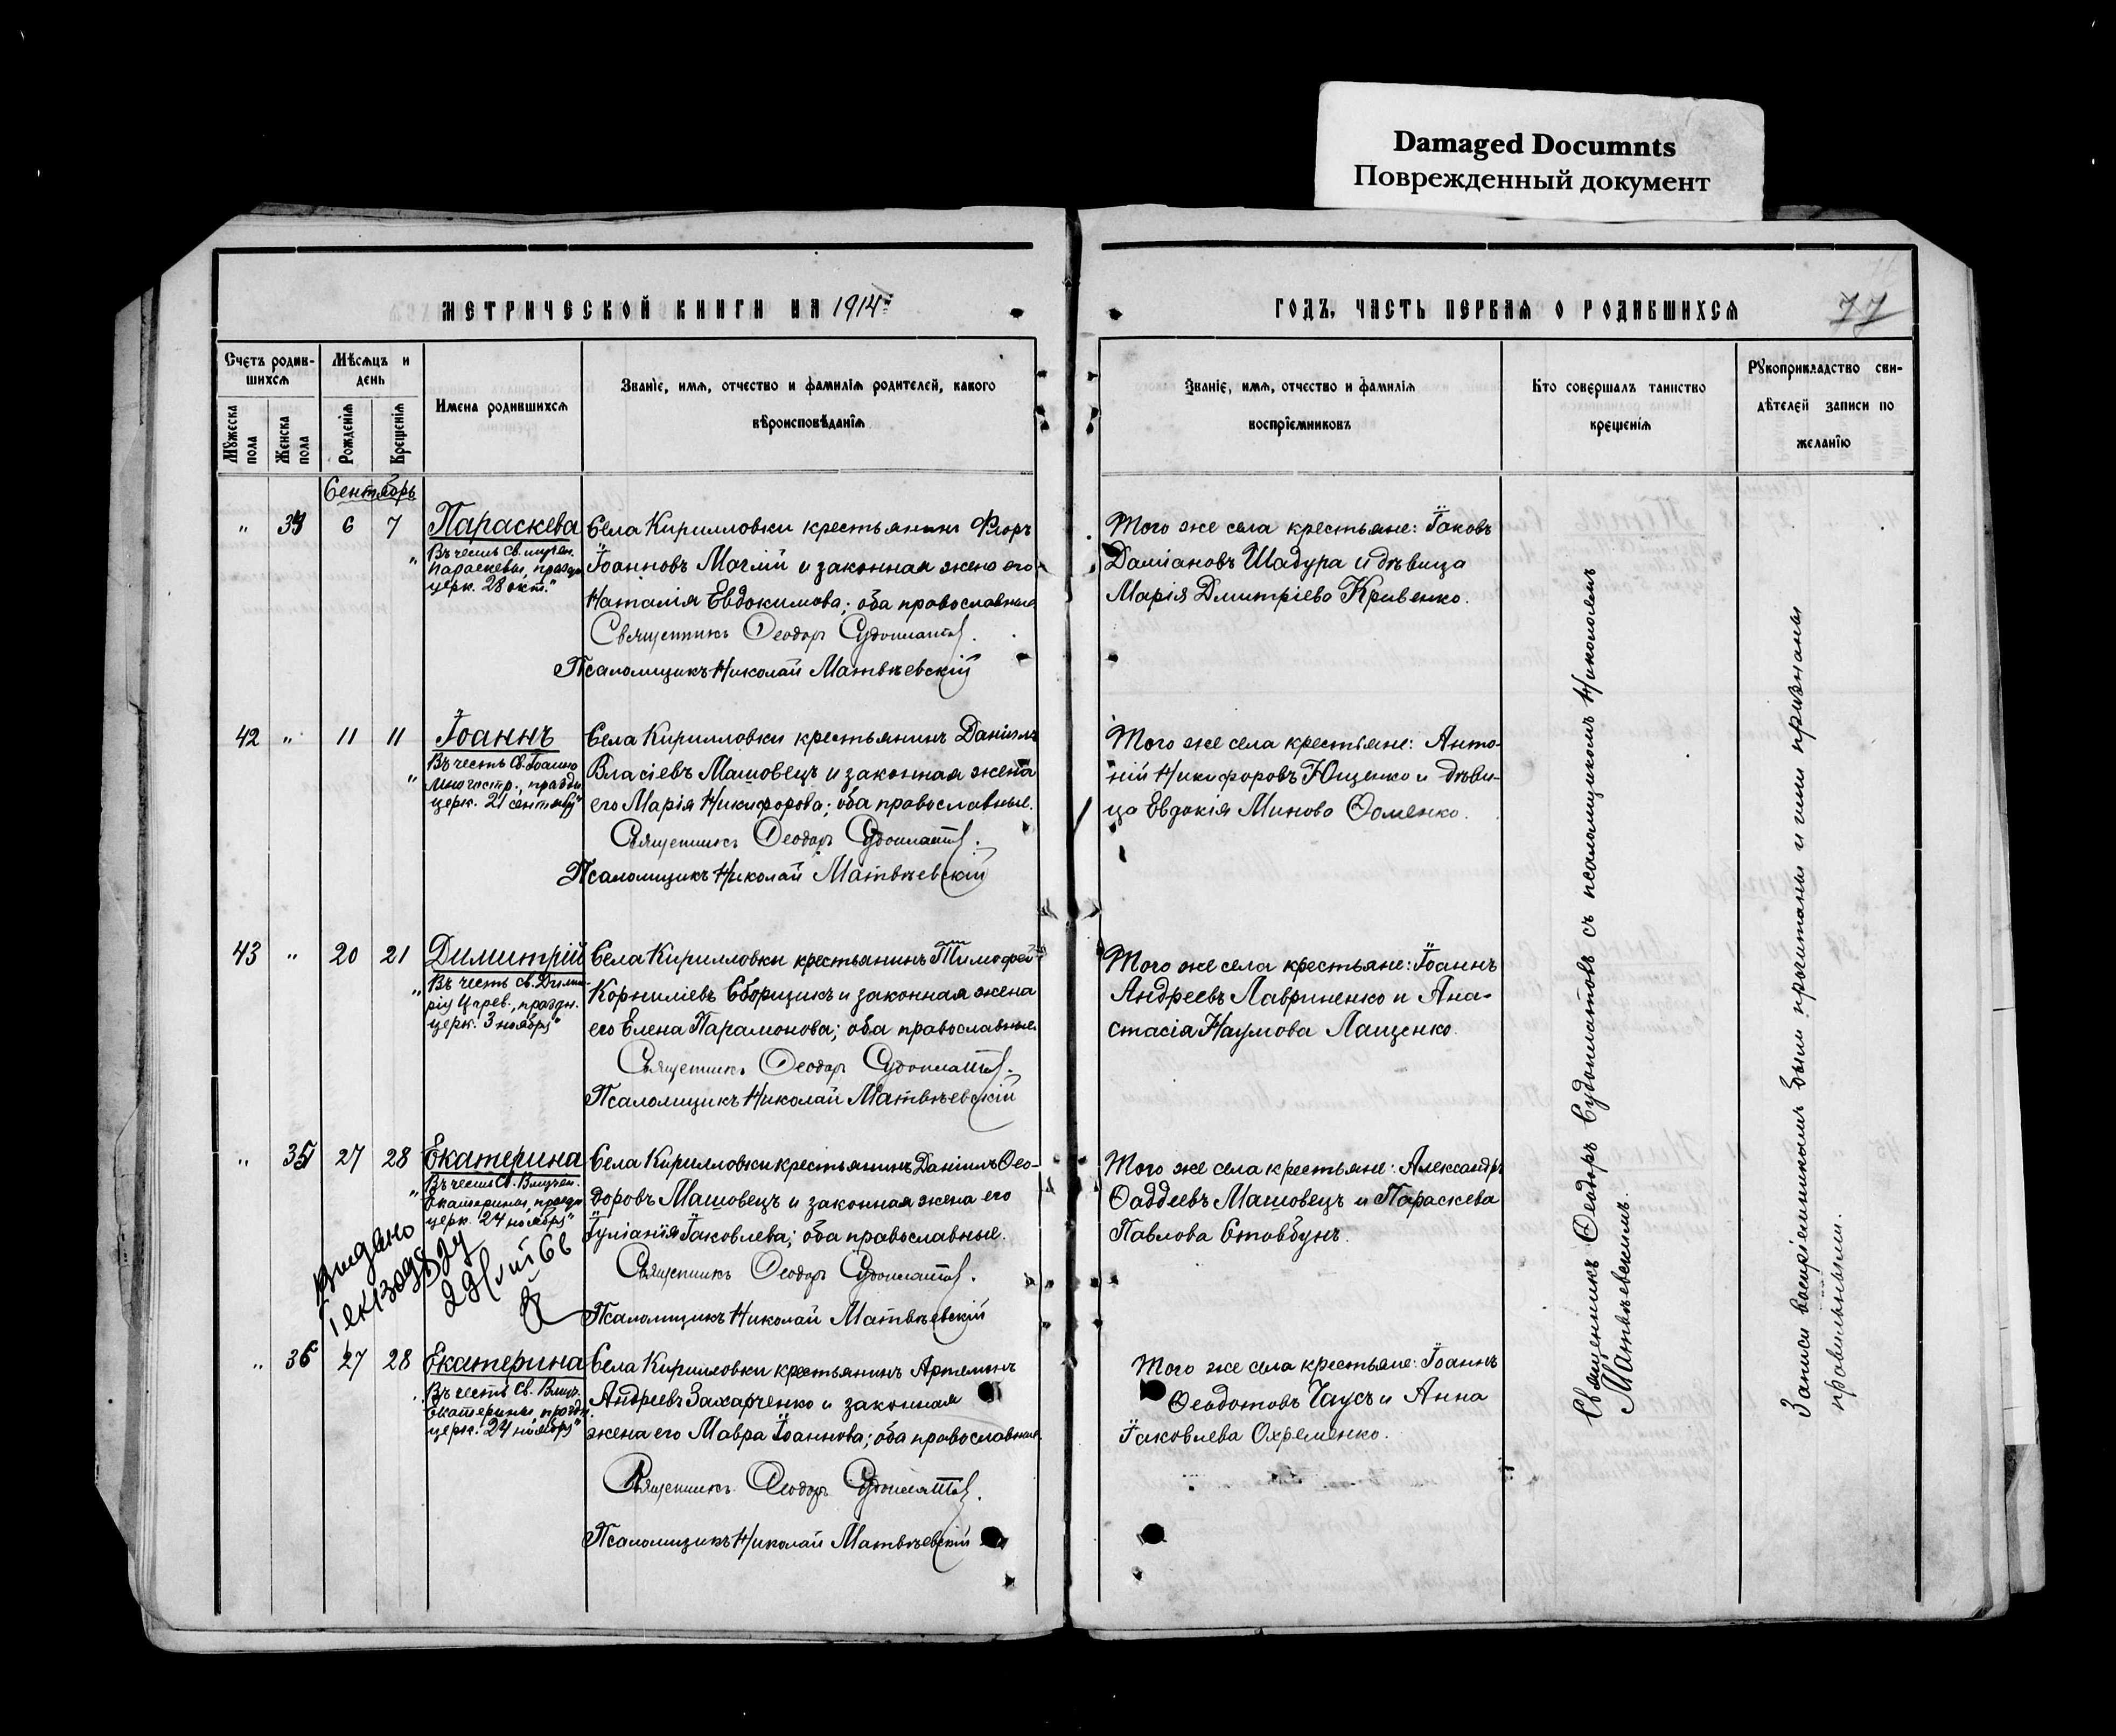 Damaged Documnts
Поврежденный документ
МЕТРИЧЕСКОЙ КНИГИ НА 1914
ГОДЪ, ЧАСТЬ ПЕРВАЯ О РОДИВШИХСЯ
77
Счетъ родив-
шихся
Мужеска
пола
Женска
пола
Мѣсяцъ и
день
Рожденія
Крещенія
Имена родившихся
Званіе, имя, отчество и фамилія родителей, какого
вѣроисповѣданія
Званіе, имя, отчество и фамилія
воспріемниковъ
Кто совершалъ таинство
крещенія
Рукоприкладство сви-
дѣтелей записи по
желанію
Сентябрь
" 6 7
Параскева
Въ честь Св. мучен.
Параскевы, праздн.
церк. 28 окт."
Села Кирилловки крестьянинъ Флоръ
Іоанновъ Моглій и законная жена его
Наталія Евдокимова; оба православные
Священникъ Ѳеодоръ Судоплатовъ.
Псаломщикъ Николай Матвѣевскій
Того же села крестьяне: Іаковъ
Даміановъ Шадура и дѣвица
Марія Димитріева Кривенко.
42 " 11 11
Іоаннъ
Въ честь Св. Іоанна
церк. 21 сентября"
Села Кирилловки крестьянинъ Даніилъ
Власіевъ Машовецъ и законная жена
его Марія Никифорова; оба православные.
Священникъ Ѳеодоръ Судоплатовъ.
Псаломщикъ Николай Матвѣевскій
Того же села крестьяне: Анто-
ній Никифоровъ Ющенко и дѣви-
ца Евдокія Минова Ѳоменко.
43 " 20 21
Димитрій
Въ честь Св. Дими-
рія Царев., праздн.
церк. 3 ноября"
Села Кирилловки крестьянинъ Тимофей
Корниліевъ Сборщикъ и законная жена
его Елена Парамонова; оба православные.
Священникъ Ѳеодоръ Судоплатовъ.
Псаломщикъ Николай Матвѣевскій
Того же села крестьяне: Іоаннъ
Андреевъ Лавриненко и Ана-
стасія Наумова Лащенко.
" 35 27 28
Екатерина
Въ честь Св. Влмучен.
Екатерины, праздн.
церк. 24 ноября"
Села Кирилловки крестьянинъ Даніилъ Ѳео-
доровъ Машовецъ и законная жена его
Іуліанія Іаковлева; оба православные.
Священникъ Ѳеодоръ Судоплатовъ.
Псаломщикъ Николай Матвѣевскій
Того же села крестьяне: Александръ
Ѳаддеевъ Машовецъ и Параскева
Павлова Стовбунъ.
Видано
" 36 27 28
Екатерина
Въ честь Св. Влмуч.
Екатерины, праздн.
церк. 24 ноября"
Села Кирилловки крестьянинъ Артемонъ
Андреевъ Захарченко и законная
жена его Мавра Іоаннова; оба православные.
Священникъ Ѳеодоръ Судоплатовъ.
Псаломщикъ Николай Матвѣевскій
Того же села крестьяне: Іоаннъ
Ѳеодотовъ Чаусъ и Анна
Іаковлева Охременко.
Священникъ Ѳеодоръ Судоплатовъ съ псаломщикомъ Николаемъ
Матвѣевскимъ.
Записи воспріемникомъ были прочитаны и ими признаны
правильными.